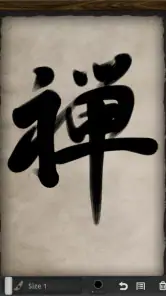 禅
Size 1